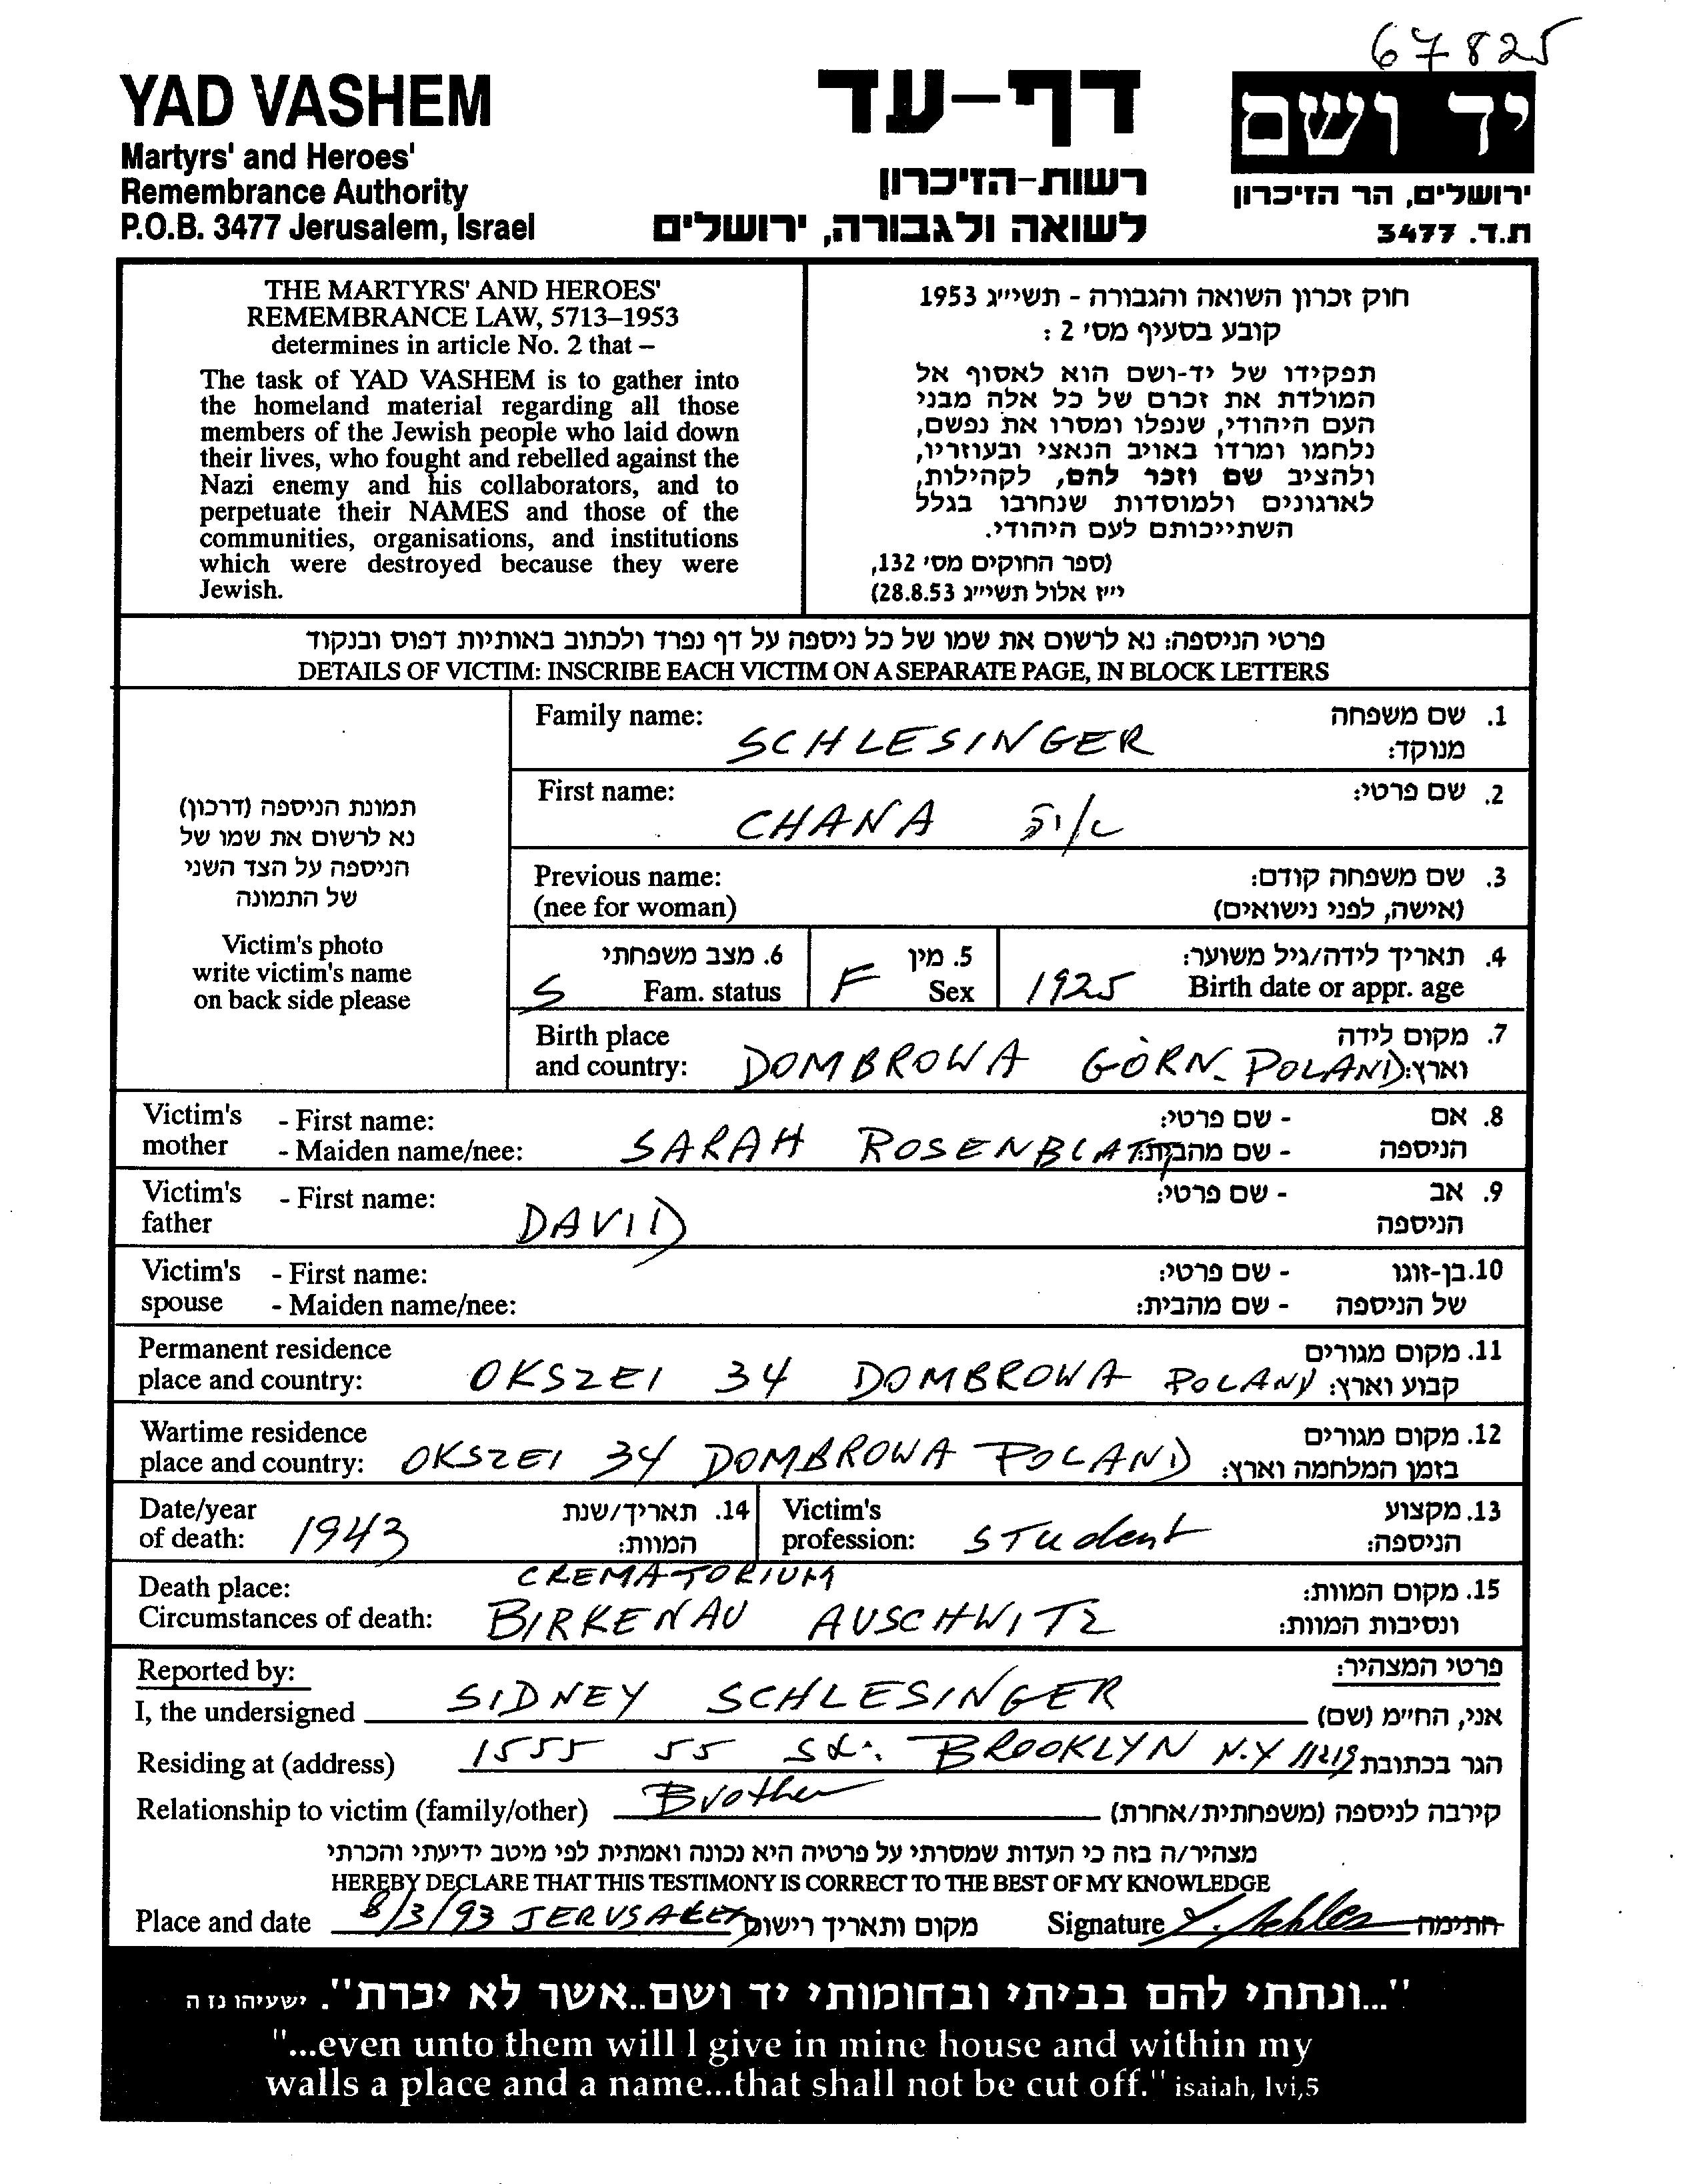 67825
YAD VASHEM
Martyrs' and Heroes'
Remembrance Authority
P.O.B. 3477 Jerusalem, Israel
דף-עד
רשות-הזיכרון
לשואה ולגבורה, ירושלים
יד ושם
ירושלים, הר הזיכרון
ת.ד. 3477
THE MARTYRS' AND HEROES'
REMEMBRANCE LAW, 5713–1953
determines in article No. 2 that –
The task of YAD VASHEM is to gather into
the homeland material regarding all those
members of the Jewish people who laid down
their lives, who fought and rebelled against the
Nazi enemy and his collaborators, and to
perpetuate their NAMES and those of the
communities, organisations, and institutions
which were destroyed because they were
Jewish.
חוק זכרון השואה והגבורה - תשי״ג 1953
קובע בסעיף מס׳ 2 :
תפקידו של יד-ושם הוא לאסוף אל
המולדת את זכרם של כל אלה מבני
העם היהודי, שנפלו ומסרו את נפשם,
נלחמו ומרדו באויב הנאצי ובעוזריו,
ולהציב שם וזכר להם, לקהילות,
לארגונים ולמוסדות שנחרבו בגלל
השתייכותם לעם היהודי.
(ספר החוקים מס׳ 132,
י״ז אלול תשי״ג 28.8.53)
פרטי הניספה: נא לרשום את שמו של כל ניספה על דף נפרד ולכתוב באותיות דפוס ובנקוד
DETAILS OF VICTIM: INSCRIBE EACH VICTIM ON A SEPARATE PAGE, IN BLOCK LETTERS
תמונת הניספה (דרכון)
נא לרשום את שמו של
הניספה על הצד השני
של התמונה
Victim's photo
write victim's name
on back side please
Family name: SCHLESINGER 1. שם משפחה
מנוקד:
First name: CHANA 2. שם פרטי:
Previous name: 3. שם משפחה קודם:
(nee for woman) (אישה, לפני נישואים)
6. מצב משפחתי 5. מין 4. תאריך לידה/גיל משוער:
S Fam. status F Sex 1925 Birth date or appr. age
Birth place 7. מקום לידה
and country: DOMBROWA GÓRN. POLAND וארץ:
Victim's - First name: - שם פרטי: 8. אם
mother - Maiden name/nee: SARAH ROSENBLATT - שם מהבית: הניספה
Victim's - First name: - שם פרטי: 9. אב
father DAVID הניספה
Victim's - First name: - שם פרטי: 10. בן-זוגו
spouse - Maiden name/nee: - שם מהבית: של הניספה
Permanent residence 11. מקום מגורים
place and country: OKSZEI 34 DOMBROWA POLAND קבוע וארץ:
Wartime residence 12. מקום מגורים
place and country: OKSZEI 34 DOMBROWA POLAND בזמן המלחמה וארץ:
Date/year 14. תאריך/שנת Victim's 13. מקצוע
of death: 1943 המוות: profession: STudent הניספה:
Death place: CREMATORIUM 15. מקום המוות:
Circumstances of death: BIRKENAU AUSCHWITZ ונסיבות המוות:
Reported by: פרטי המצהיר:
I, the undersigned SIDNEY SCHLESINGER אני, הח״מ (שם)
Residing at (address) 1555 55 St. BROOKLYN N.Y 11219 הגר בכתובת
Relationship to victim (family/other) Brother קירבה לניספה (משפחתית/אחרת)
מצהיר/ה בזה כי העדות שמסרתי על פרטיה היא נכונה ואמתית לפי מיטב ידיעתי והכרתי
HEREBY DECLARE THAT THIS TESTIMONY IS CORRECT TO THE BEST OF MY KNOWLEDGE
Place and date 8/3/93 JERUSALEM מקום ותאריך רישום Signature חתימה
"...ונתתי להם בביתי ובחומותי יד ושם..אשר לא יכרת". ישעיהו נז ה
"...even unto them will I give in mine house and within my
walls a place and a name...that shall not be cut off." isaiah, lvi,5